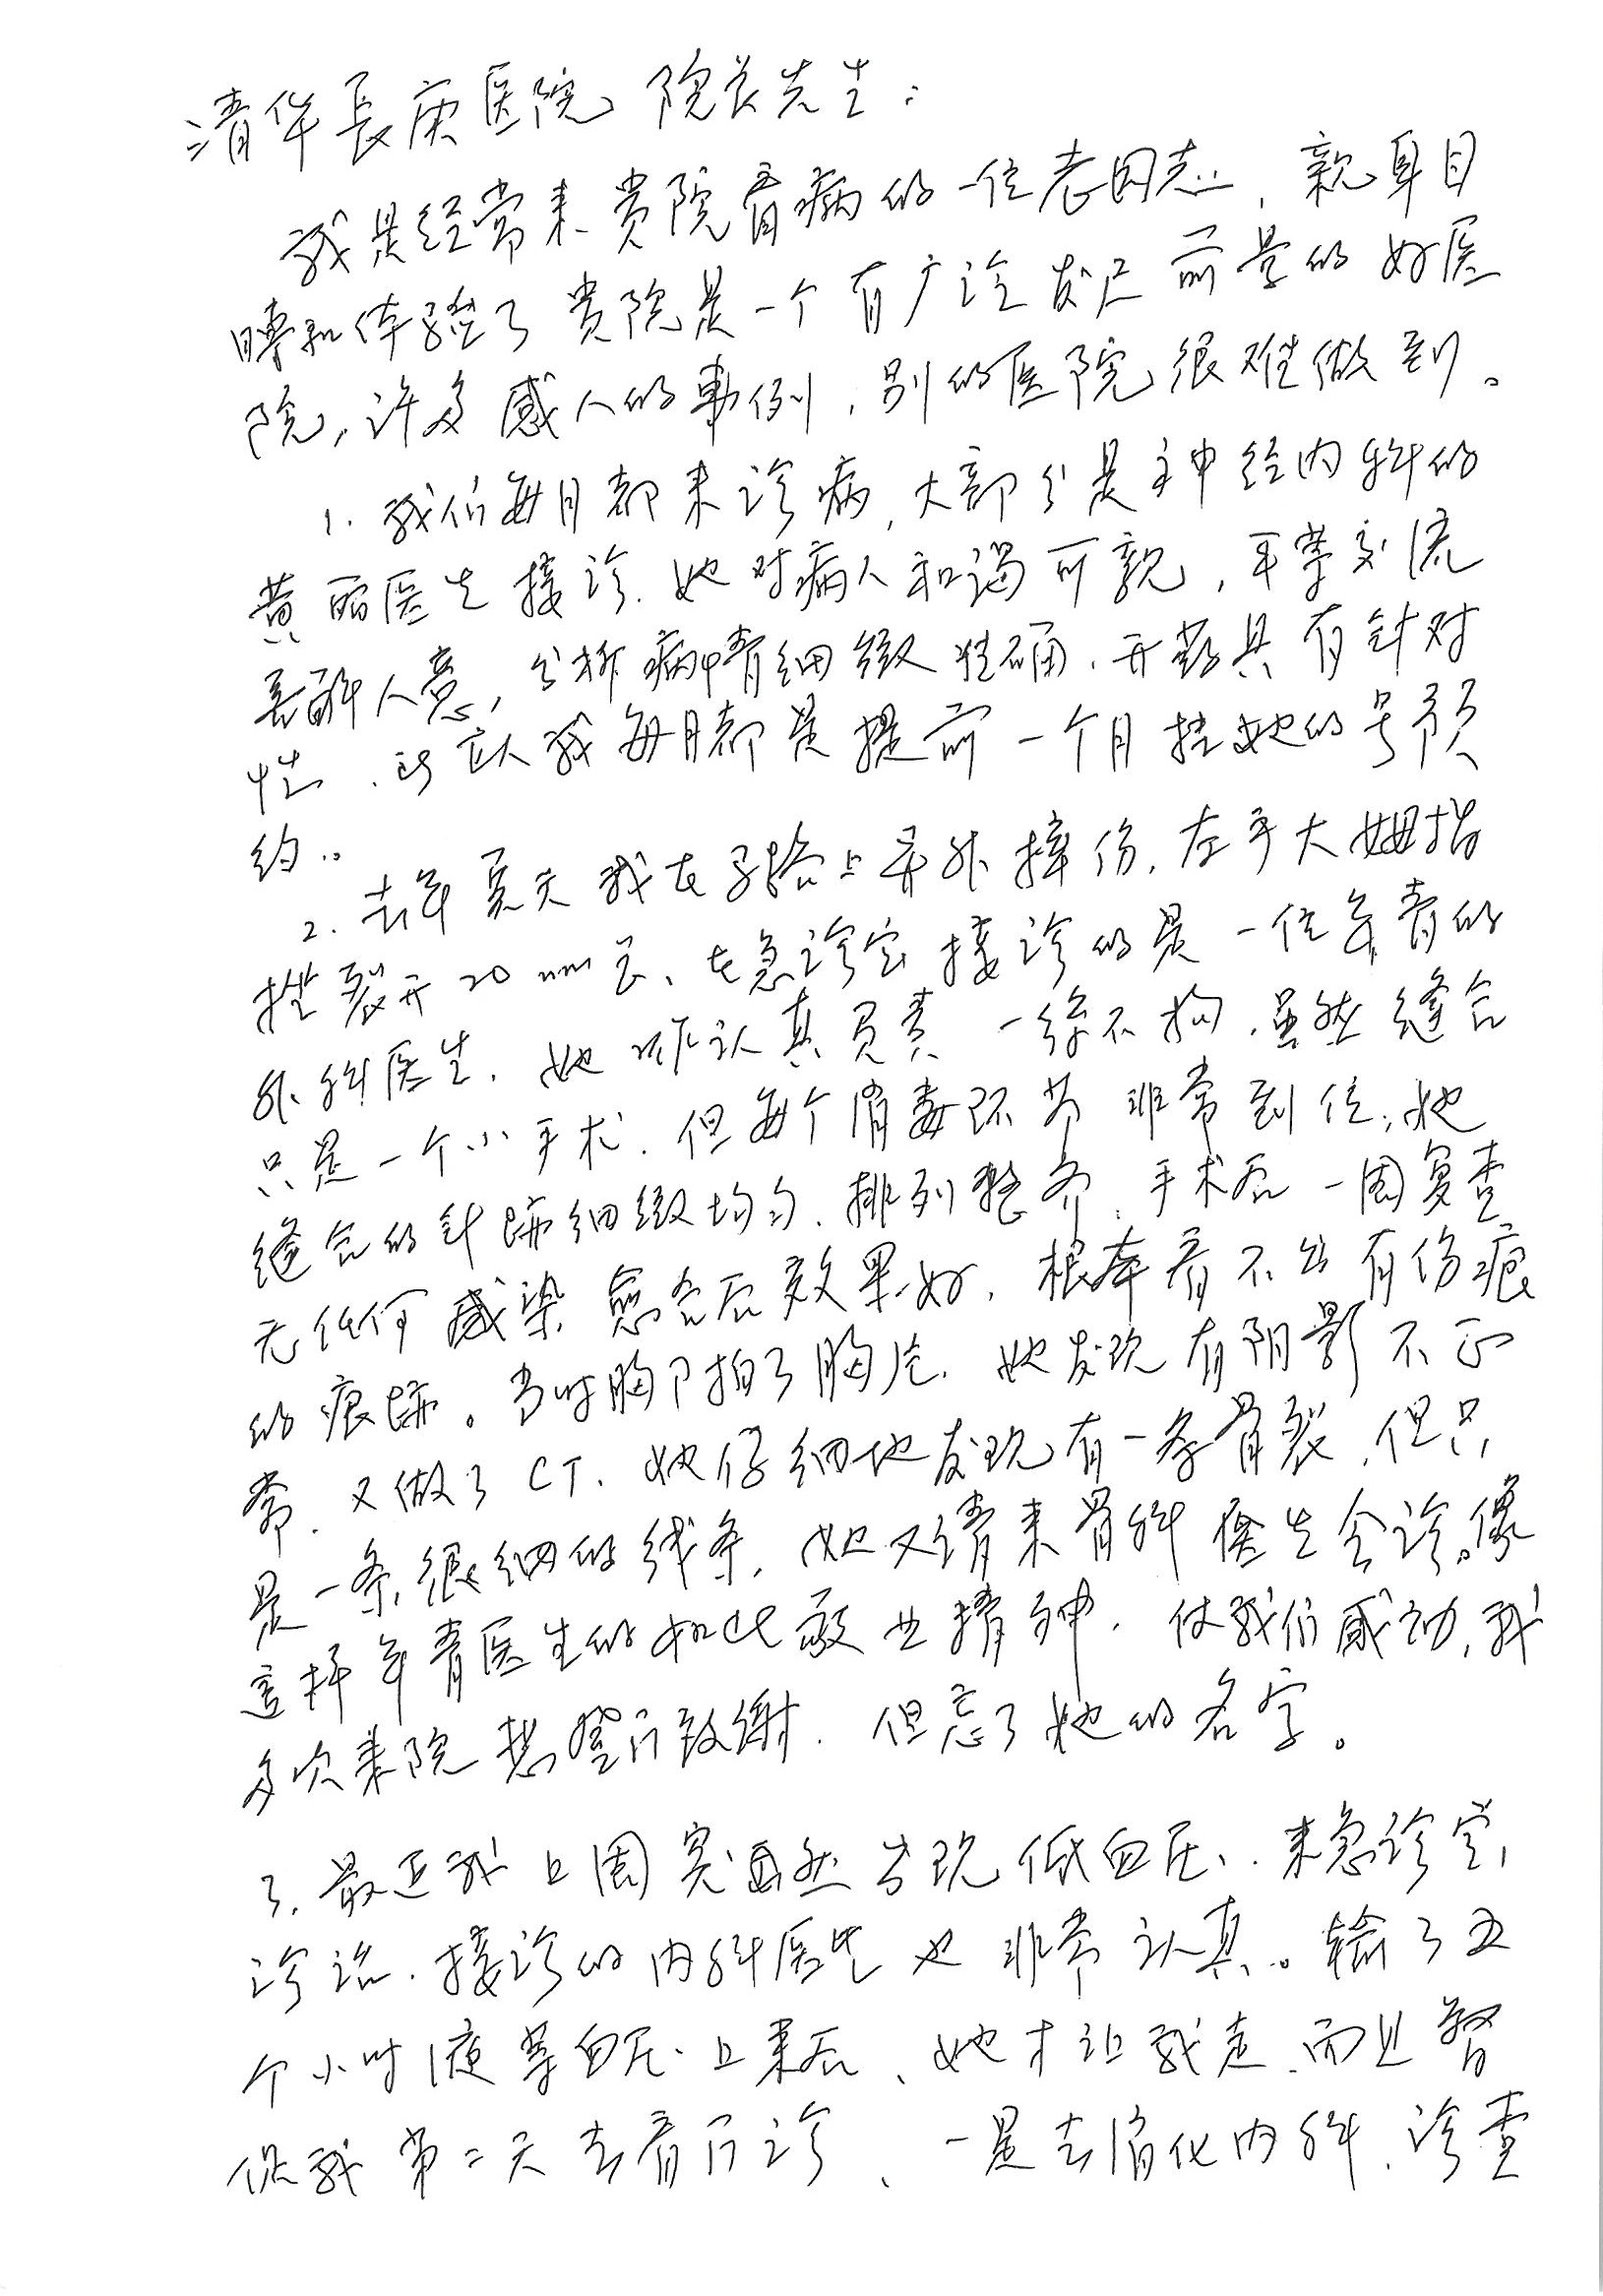 清华長庚医院 院长先生：
我是经常来贵院看病的一位老同志，亲身目
睹和体验了贵院是一个有广泛发展前景的好医
院，许多感人的事例，别的医院很难做到。
1. 我们每月都来诊病，大部分是神经内科的
黄丽医生接诊．她对病人和谒可親，耳萦交流
善解人意，分析病情细緻准确．开药具有针对
性．所以我每月都是提前一个月挂她的号预
约．
2. 去年夏天我在马路上意外摔伤．左手大姆指
挫裂开20mm长、在急诊室接诊的是一位年青的
外科医生．她工作认真负责一丝不拘．虽然缝合
只是一个小手术．但每个消毒环节非常到位，她
缝合的针跡细緻均匀．排列整齐．手术后一周复查
无任何感染 愈合后效果好．根本看不出有伤痕
的痕跡。当时胸部拍了胸片．她发现有阴影不正
常．又做了CT．她仔细地发现有一条骨裂．但只
是一条很细的线条．她又请来骨科医生会诊。像
这样年青医生的如此敬业精神．使我们感动，我
多次来院想登门致谢．但忘了她的名字。
3. 最近我上周突然出现低血压．来急诊室
诊治．接诊的内科医生也非常认真。输了五
个小时液等血压上来后、她才让我走．而且督
促我第二天去看门诊、一是去消化内科．诊查